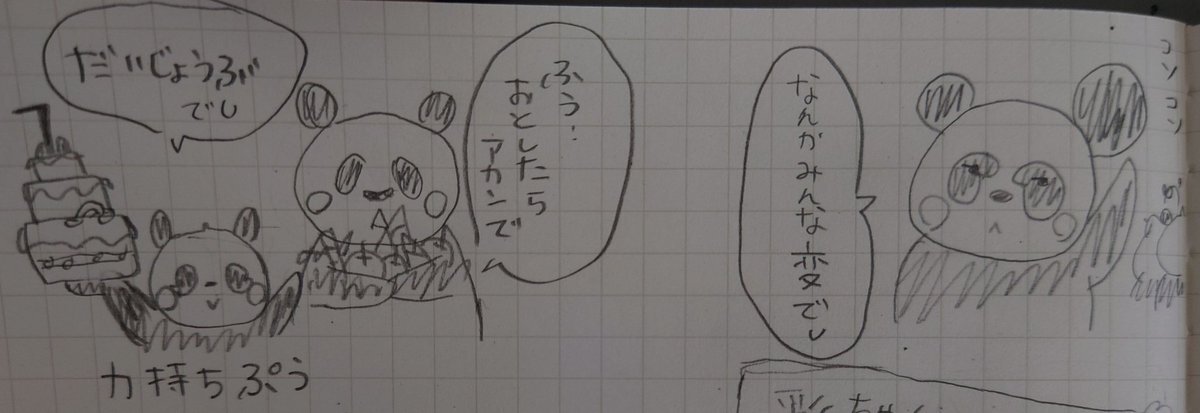 だいじょうぶ
でし
ふう…
おとしたら
アカンで
力持ちぷう
なんかみんな変でし
コソコソ